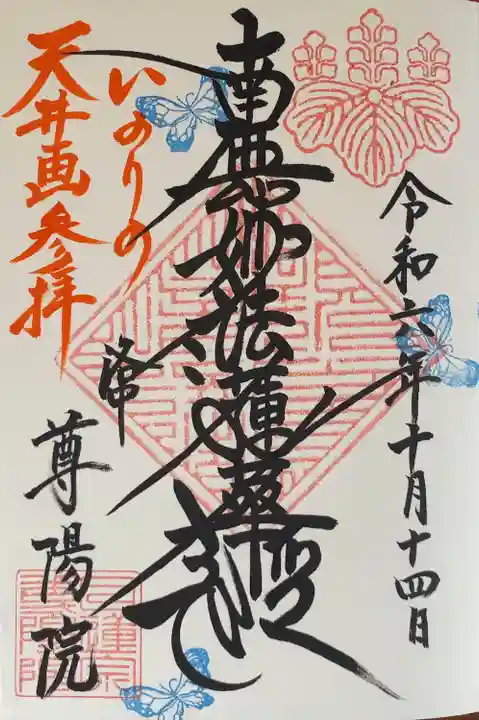 令和六年十月十四日
南無妙法蓮華経
いのりの
天井画参拝
洛中
尊陽院